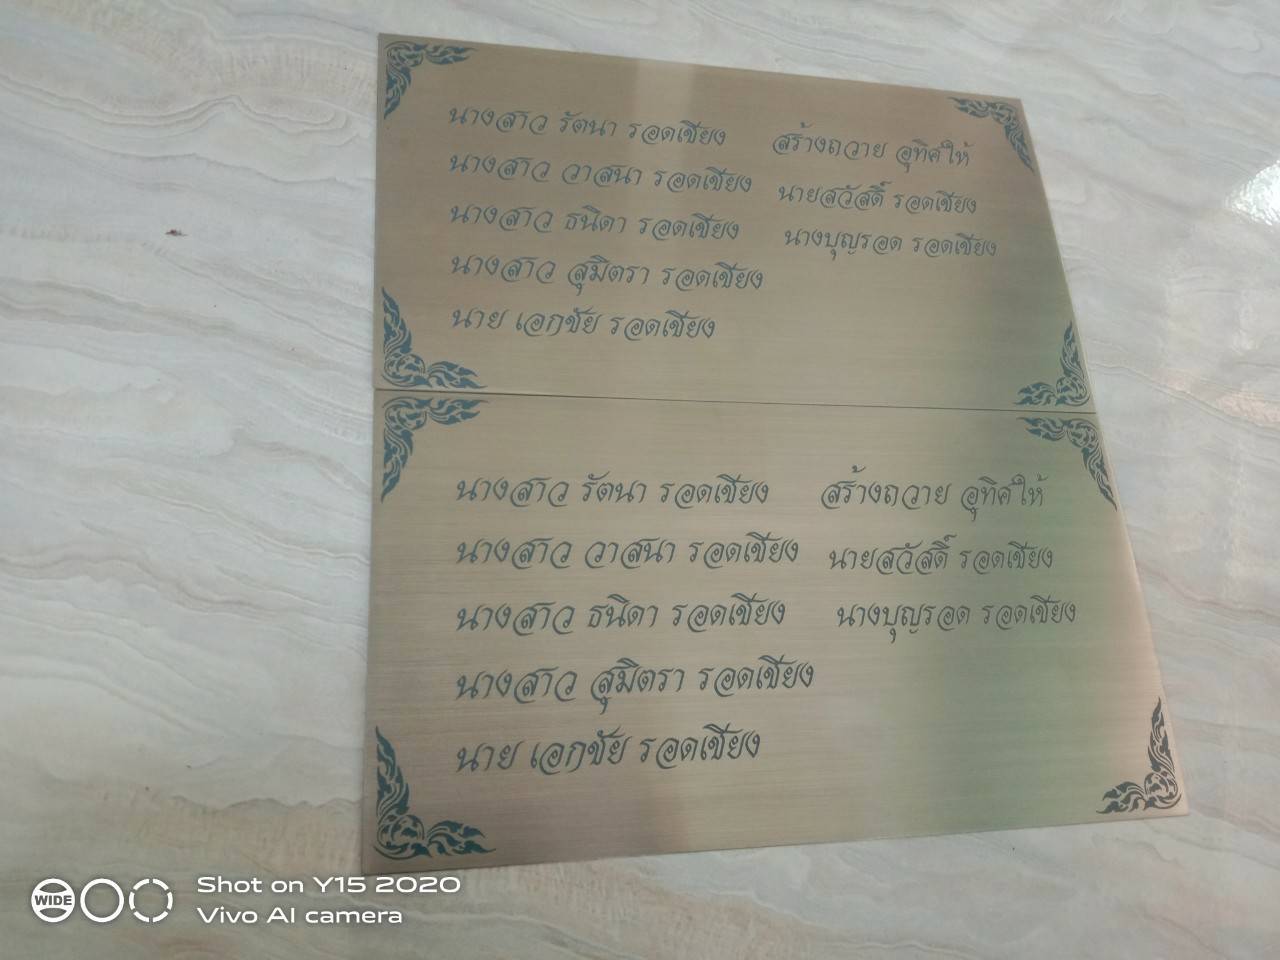 นางสาว รัตนา รอดเชียง
นางสาว วาสนา รอดเชียง
นางสาว ธนิดา รอดเชียง
นางสาว สุมิตรา รอดเชียง
นาย เอกชัย รอดเชียง
สร้างถวาย อุทิศให้
นายสวัสดิ์ รอดเชียง
นางบุญรอด รอดเชียง
นางสาว รัตนา รอดเชียง
นางสาว วาสนา รอดเชียง
นางสาว ธนิดา รอดเชียง
นางสาว สุมิตรา รอดเชียง
นาย เอกชัย รอดเชียง
สร้างถวาย อุทิศให้
นายสวัสดิ์ รอดเชียง
นางบุญรอด รอดเชียง
WIDE
Shot on Y15 2020
Vivo AI camera